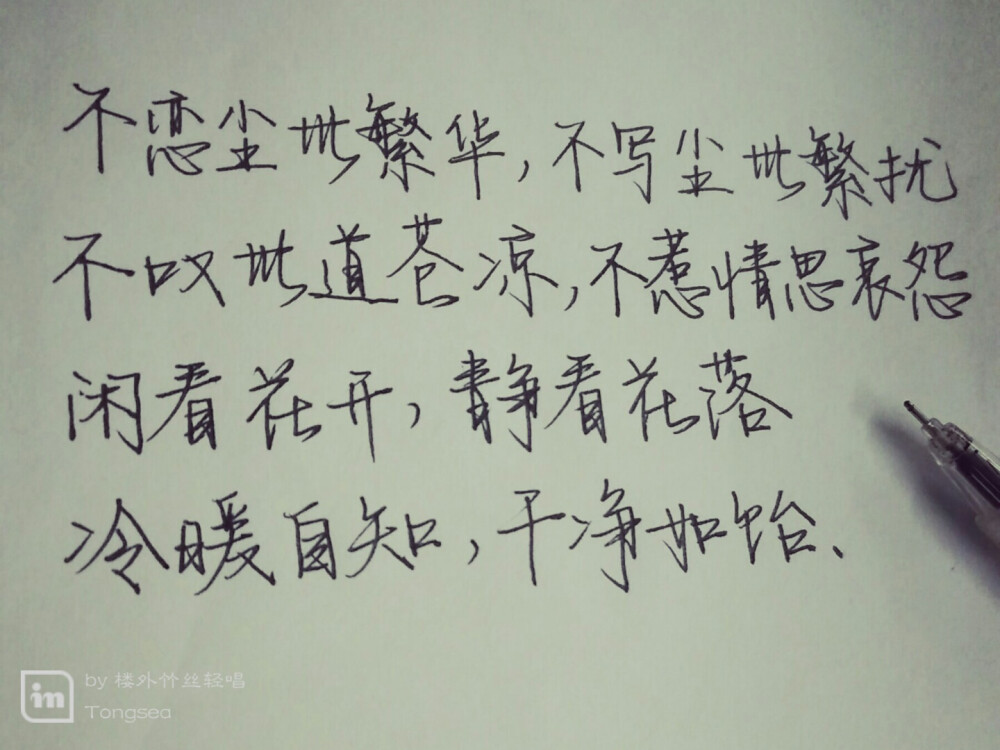 不恋尘世繁华,不写尘世繁扰
不叹世道苍凉,不惹情思哀怨
闲看花开,静看花落
冷暖自知,干净如饴、
in by 楼外竹丝轻唱
Tongsea